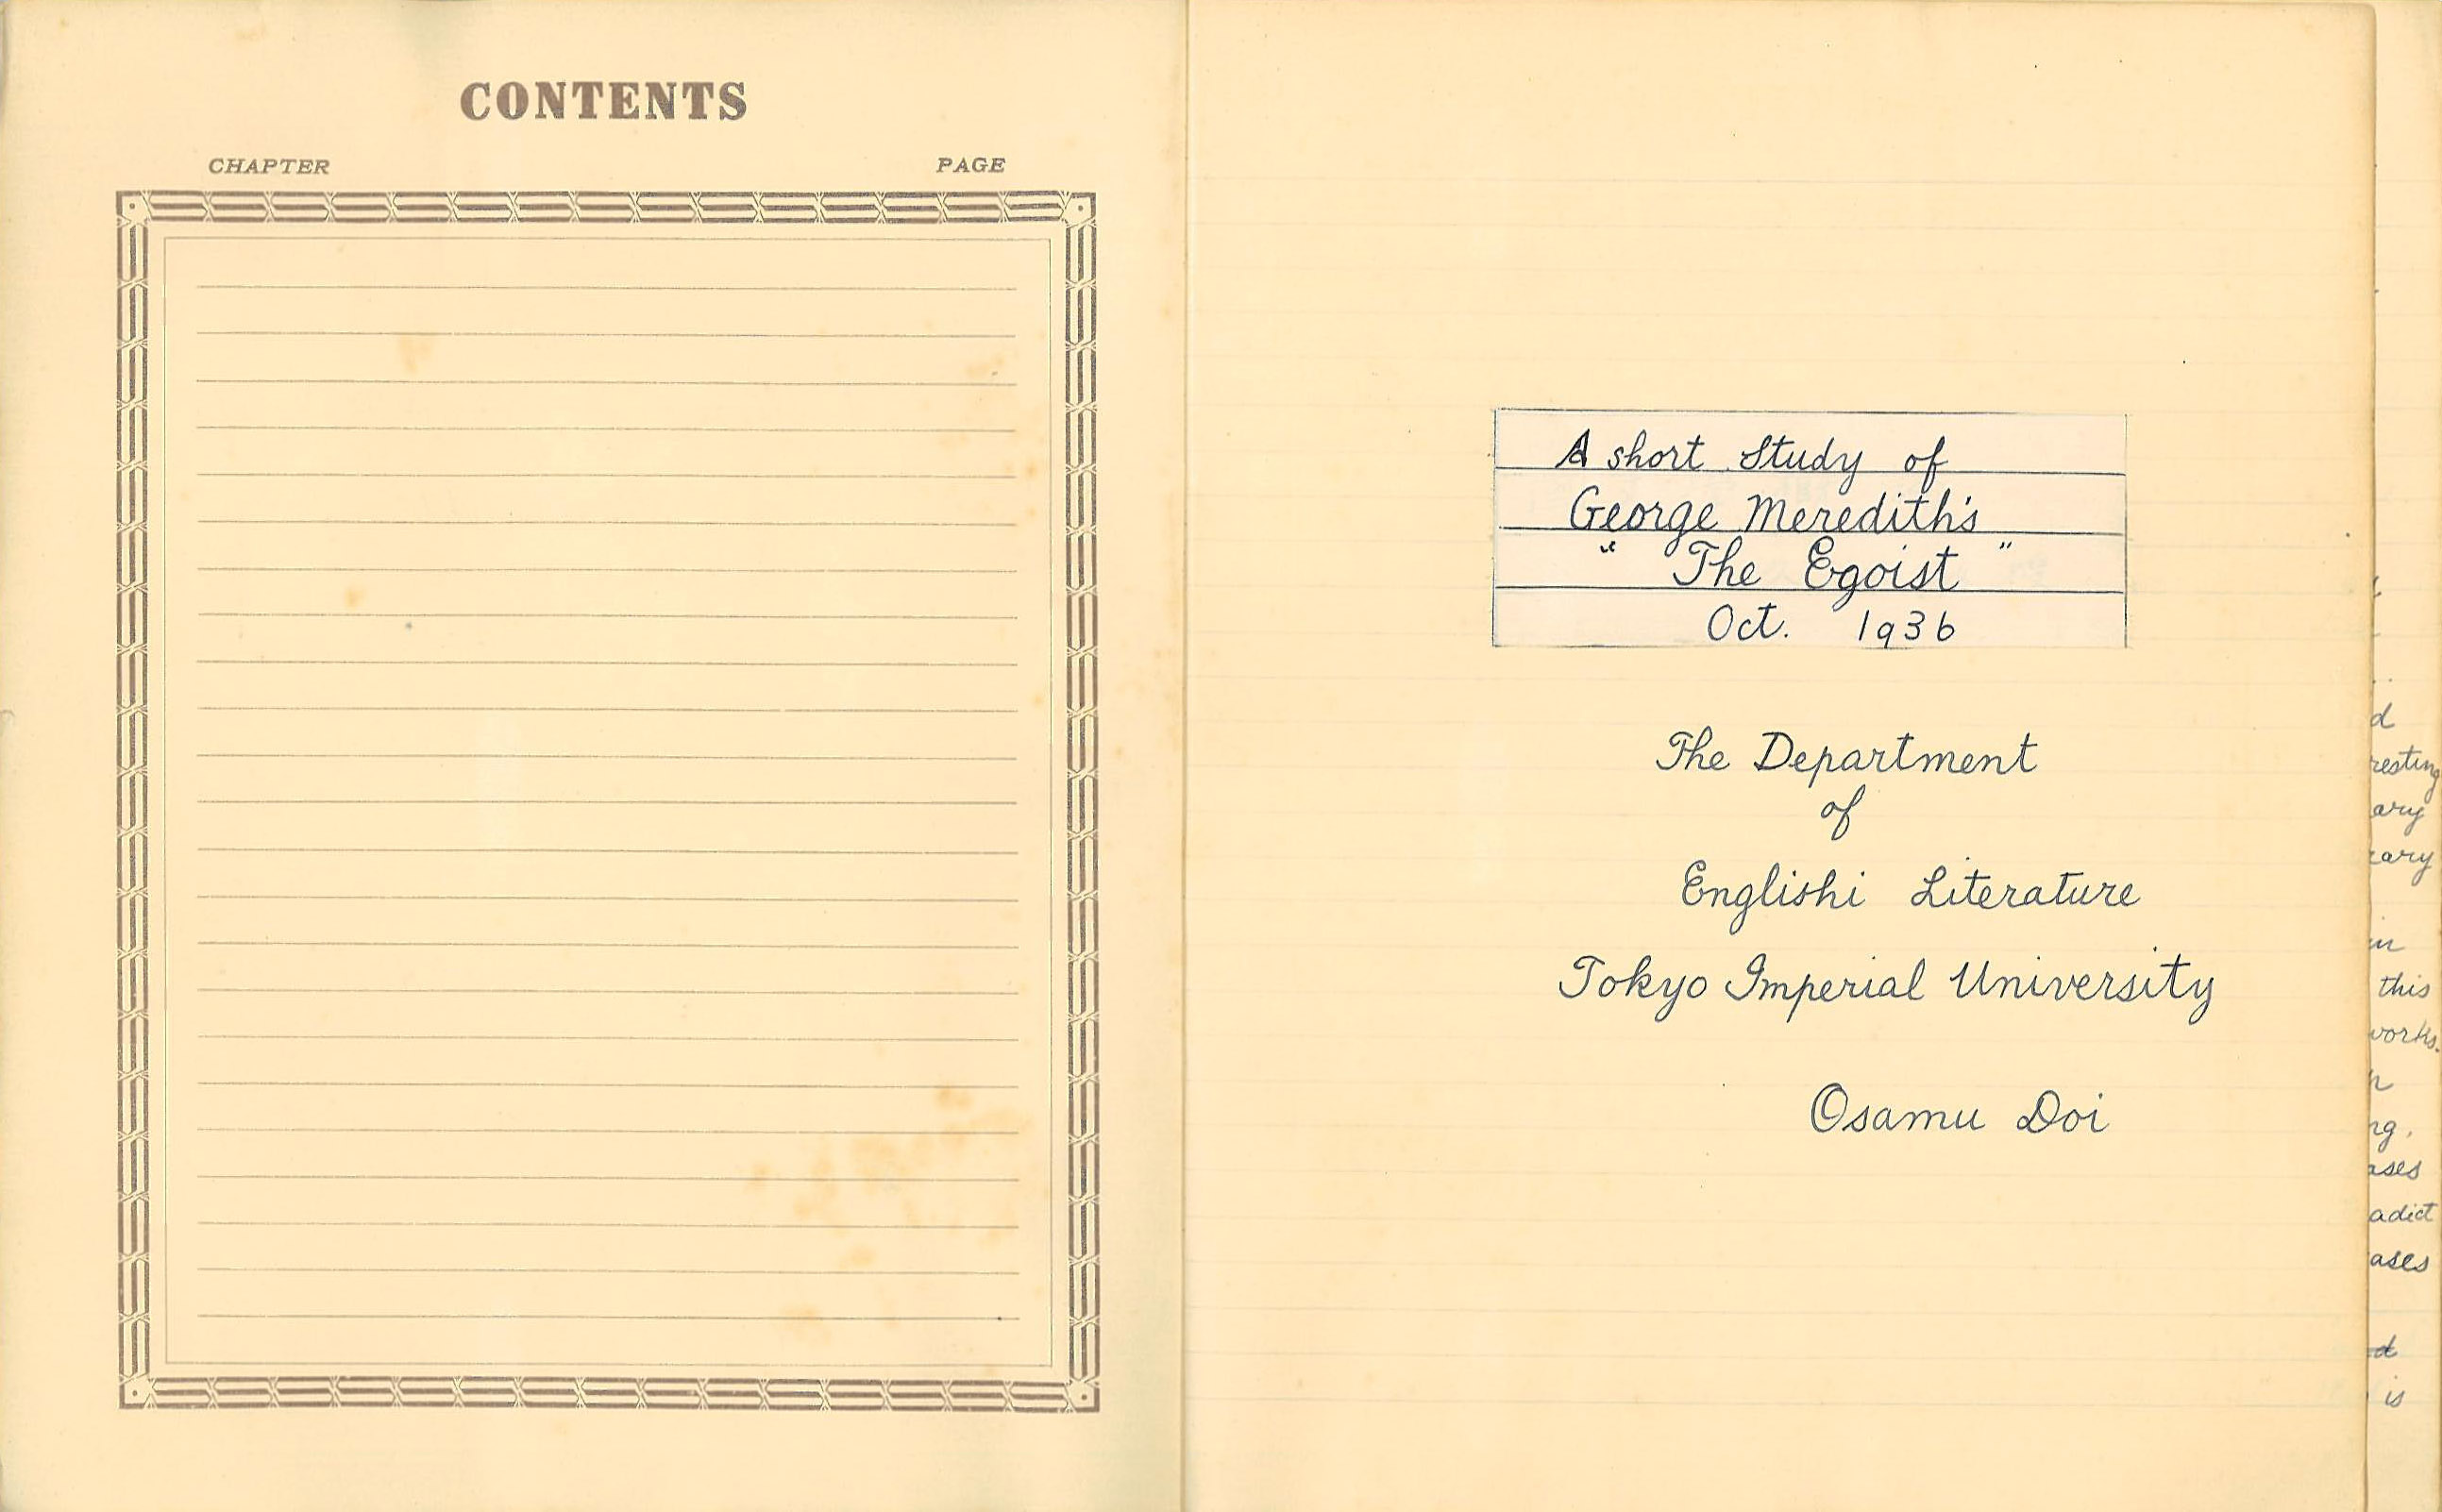 CONTENTS
CHAPTER PAGE
A short Study of
George Meredith's
" The Egoist "
Oct. 1936
The Department
of
Englishi Literature
Tokyo Imperial University
Osamu Doi
d
resting
ary
rary
in
this
works.
n
ng.
ases
adict
ases
ed
is